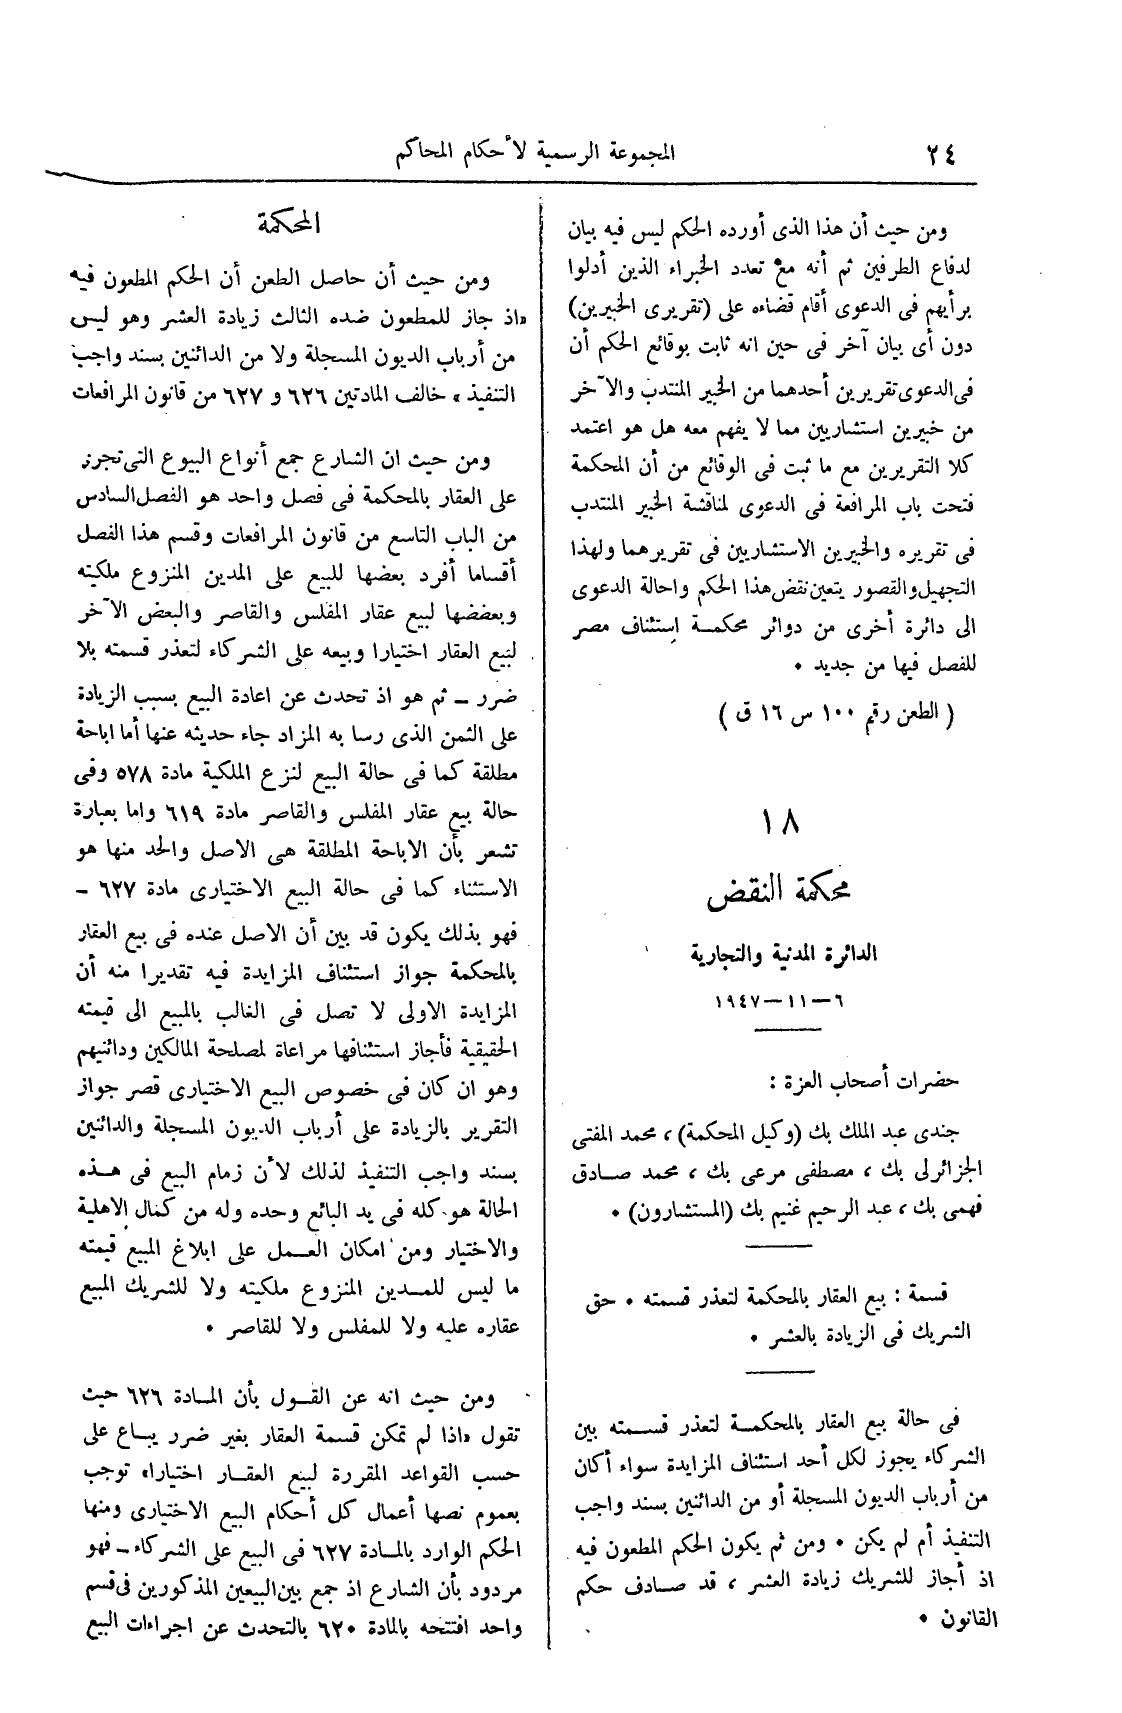 ٢٤
المجموعة الرسمية لأحكام المحاكم
ومن حيث أن هذا الذى أورده الحكم ليس فيه بيان
لدفاع الطرفين ثم أنه مع تعدد الخبراء الذين أدلوا
برأيهم فى الدعوى أقام قضاءه على (تقريرى الخبيرين)
دون أى بيان آخر فى حين انه ثابت بوقائع الحكم أن
فى الدعوى تقريرين أحدهما من الخبير المنتدب والآخر
من خبيرين استشاريين مما لا يفهم معه هل هو اعتمد
كلا التقريرين مع ما ثبت فى الوقائع من أن المحكمة
فتحت باب المرافعة فى الدعوى لمناقشة الخبير المنتدب
فى تقريره والخبيرين الاستشاريين فى تقريرهما ولهذا
التجهيل والقصور يتعين نقض هذا الحكم واحالة الدعوى
الى دائرة أخرى من دوائر محكمة استئناف مصر
للفصل فيها من جديد .
( الطعن رقم ١٠٠ س ١٦ ق )
١٨
محكمة النقض
الدائرة المدنية والتجارية
٦-١١-١٩٤٧
حضرات أصحاب العزة :
جندى عبد الملك بك (وكيل المحكمة) ، محمد المفتى
الجزائرلى بك ، مصطفى مرعى بك ، محمد صادق
فهمى بك ، عبد الرحيم غنيم بك (المستشارون) .
قسمة : بيع العقار بالمحكمة لتعذر قسمته . حق
الشريك فى الزيادة بالعشر .
فى حالة بيع العقار بالمحكمة لتعذر قسمته بين
الشركاء يجوز لكل أحد استئناف المزايدة سواء أكان
من أرباب الديون المسجلة أو من الدائنين بسند واجب
التنفيذ أم لم يكن . ومن ثم يكون الحكم المطعون فيه
اذ أجاز للشريك زيادة العشر ، قد صادف حكم
القانون .
المحكمة
ومن حيث أن حاصل الطعن أن الحكم المطعون فيه
«اذ جاز للمطعون ضده الثالث زيادة العشر وهو ليس
من أرباب الديون المسجلة ولا من الدائنين بسند واجب
التنفيذ » خالف المادتين ٦٢٦ و ٦٢٧ من قانون المرافعات
ومن حيث ان الشارع جمع أنواع البيوع التى تجرى
على العقار بالمحكمة فى فصل واحد هو الفصل السادس
من الباب التاسع من قانون المرافعات وقسم هذا الفصل
أقساما أفرد بعضها للبيع على المدين المنزوع ملكيته
وبعضها لبيع عقار المفلس والقاصر والبعض الآخر
لبيع العقار اختيارا وبيعه على الشركاء لتعذر قسمته بلا
ضرر - ثم هو اذ تحدث عن اعادة البيع بسبب الزيادة
على الثمن الذى رسا به المزاد جاء حديثه عنها أما اباحة
مطلقة كما فى حالة البيع لنزع الملكية مادة ٥٧٨ وفى
حالة بيع عقار المفلس والقاصر مادة ٦١٩ واما بعبارة
تشعر بأن الاباحة المطلقة هى الاصل والحد منها هو
الاستثناء كما فى حالة البيع الاختيارى مادة ٦٢٧ -
فهو بذلك يكون قد بين أن الاصل عنده فى بيع العقار
بالمحكمة جواز استئناف المزايدة فيه تقديرا منه أن
المزايدة الاولى لا تصل فى الغالب بالمبيع الى قيمته
الحقيقية فأجاز استئنافها مراعاة لمصلحة المالكين ودائنيهم
وهو ان كان فى خصوص البيع الاختيارى قصر جواز
التقرير بالزيادة على أرباب الديون المسجلة والدائنين
بسند واجب التنفيذ لذلك لأن زمام البيع فى هذه
الحالة هو كله فى يد البائع وحده وله من كمال الاهلية
والاختيار ومن امكان العمل على ابلاغ المبيع قيمته
ما ليس للمدين المنزوع ملكيته ولا للشريك المبيع
عقاره عليه ولا للمفلس ولا للقاصر .
ومن حيث انه عن القول بأن المادة ٦٢٦ حيث
تقول «اذا لم تمكن قسمة العقار بغير ضرر يباع على
حسب القواعد المقررة لبيع العقار اختيارا» توجب
بعموم نصها أعمال كل أحكام البيع الاختيارى ومنها
الحكم الوارد بالمادة ٦٢٧ فى البيع على الشركاء - فهو
مردود بأن الشارع اذ جمع بين البيعين المذكورين فى قسم
واحد افتتحه بالمادة ٦٢٠ بالتحدث عن اجراءات البيع